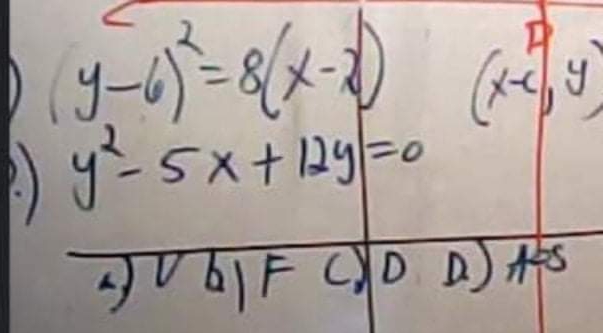 D
) (y-6)² = 8(x-2) (x-c, y)
.) y² - 5x + 12y = 0
a) V b) F C) D D) AOS